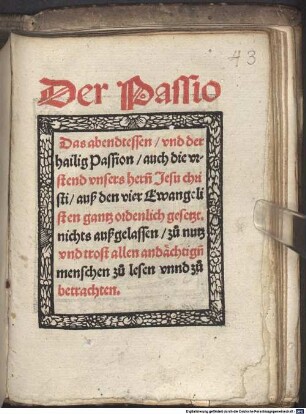 43
Der Passio
Das abendtessen / vnd der
hailig Passion / auch die vr⸗
stend vnsers herñ Jesu chri
sti / auß den vier Ewangeli
sten gantz ordenlich gesetzt.
nichts außgelassen / zů nutz
vnd trost allen andåchtigñ
menschen zů lesen vnnd zů
betrachten.